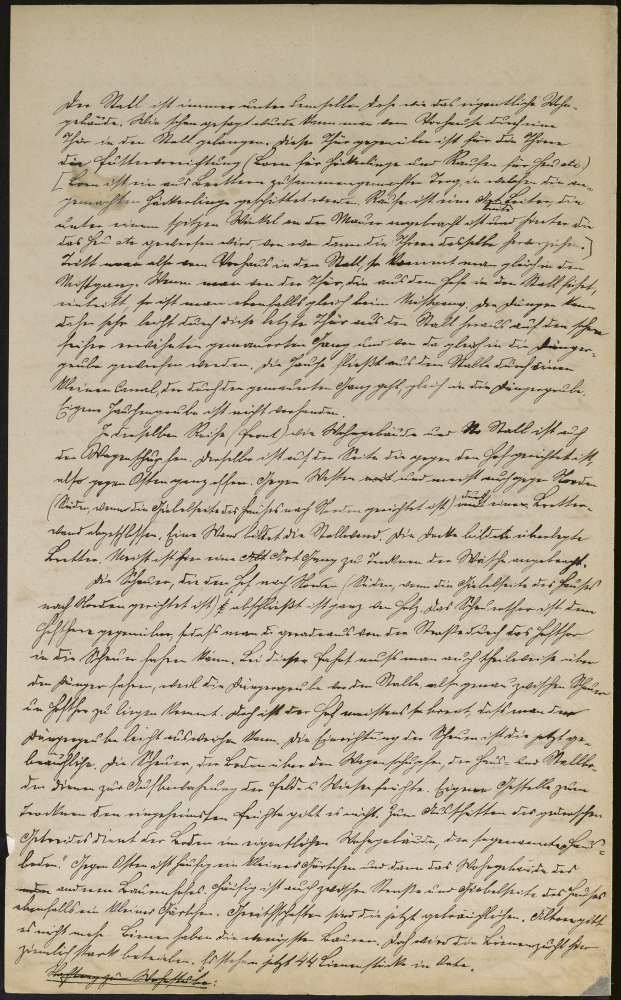 Der Stall ist immer unter demselben Dache wie das eigentliche Wohn-
gebäude. Wie schon gesagt wurde kann man vom Vorhause durch eine
Thür in den Stall gelangen. Dieser Thür gegenüber ist für die Thiere
die Futtervorrichtung (Barn für Häckerlinge und Raufen für Heu etc)
[Barn ist ein aus Brettern zusammengemachter Trog, in welchen die an-
gemachten Häckerlinge geschüttet werden. Raufe ist eine Leiter, die
unter einem spitzen Winkel an der Mauer angebracht ist und hinter die
das Heu etc geworfen wird, von wo dann die Thiere dasselbe herausziehen.]
Tritt man also vom Vorhaus in den Stall, so kommt man gleich in den
Mistgang. Wenn man von der Thür, die aus dem Hofe in den Stall führt,
eintritt, so ist man ebenfalls gleich beim Mistgang. Der Dünger kann
daher sehr leicht durch diese letzte Thür aus dem Stall heraus auf den schon
früher erwähnten gemauerten Gang und von da gleich in die Dünger-
grube geworfen werden. Die Jauche fließt aus dem Stalle durch einen
kleinen Canal, der durch den gemauerten Gang geht, gleich in die Düngergrube.
Eigene Jauchengrube ist nicht vorhanden.
In derselben Reihe (Front) wie Wohngebäude und Stall ist auch
der Wagenschuppen. Derselbe ist auf der Seite die gegen den Hof gerichtet ist,
also gegen Osten ganz offen. Gegen Westen und meist auch gegen Norden
(Süden, wenn die Giebelseite des Hauses nach Norden gerichtet ist) durch eine Bretter-
wand abgeschlossen. Eine Wand bildet die Stallwand. Die Decke bilden überlegte
Bretter. Meist ist hier eine Art Gang zu Trocknen der Wäsche angebracht.
Die Scheuer, die den Hof nach Norden (Süden, wenn die Giebelseite des Hauses
nach Norden gerichtet ist) abschließt ist ganz von Holz. Das Scheuerthor ist dem
Hofthore gegenüber, so daß man geradeaus von der Straße durch das Hofthor
in die Scheuer fahren kann. Bei dieser Fahrt muß man auch theilweise über
den Dünger fahren, weil die Düngergrube vor dem Stalle, also genau zwischen Scheuer
und Hofthor zu liegen kommt. Doch ist der Hof meistens so breit, daß man der
Düngergrube leicht ausweichen kann. Die Einrichtung der Scheuer ist die jetzt ge-
bräuchliche. Die Scheuer, der Boden über dem Wagenschuppen, der Heu- und Stallbo-
den dienen zur Aufbewahrung der Feld- u Wiesenfrüchte. Eigene Gestelle zum
Trocknen der eingeheimsten Früchte gibt es nicht. Zum Aufschütten des gedroschenen
Getreides dient der Boden im eigentlichen Wohngebäude, der sogenannte „Haus-
boden". Gegen Osten ist häufig ein kleines Gärtchen und dann das Wohngebäude des
anderen Bauernhofes. Häufig ist auch zwischen Straße und Giebelseite des Hauses
ebenfalls ein kleines Gärtchen.
es nicht mehr. Bienen haben die wenigsten Bauern. Doch wird die Bienenzucht hier
ziemlich stark betrieben. Es stehen jetzt 44 Bienenstöcke im Orte.